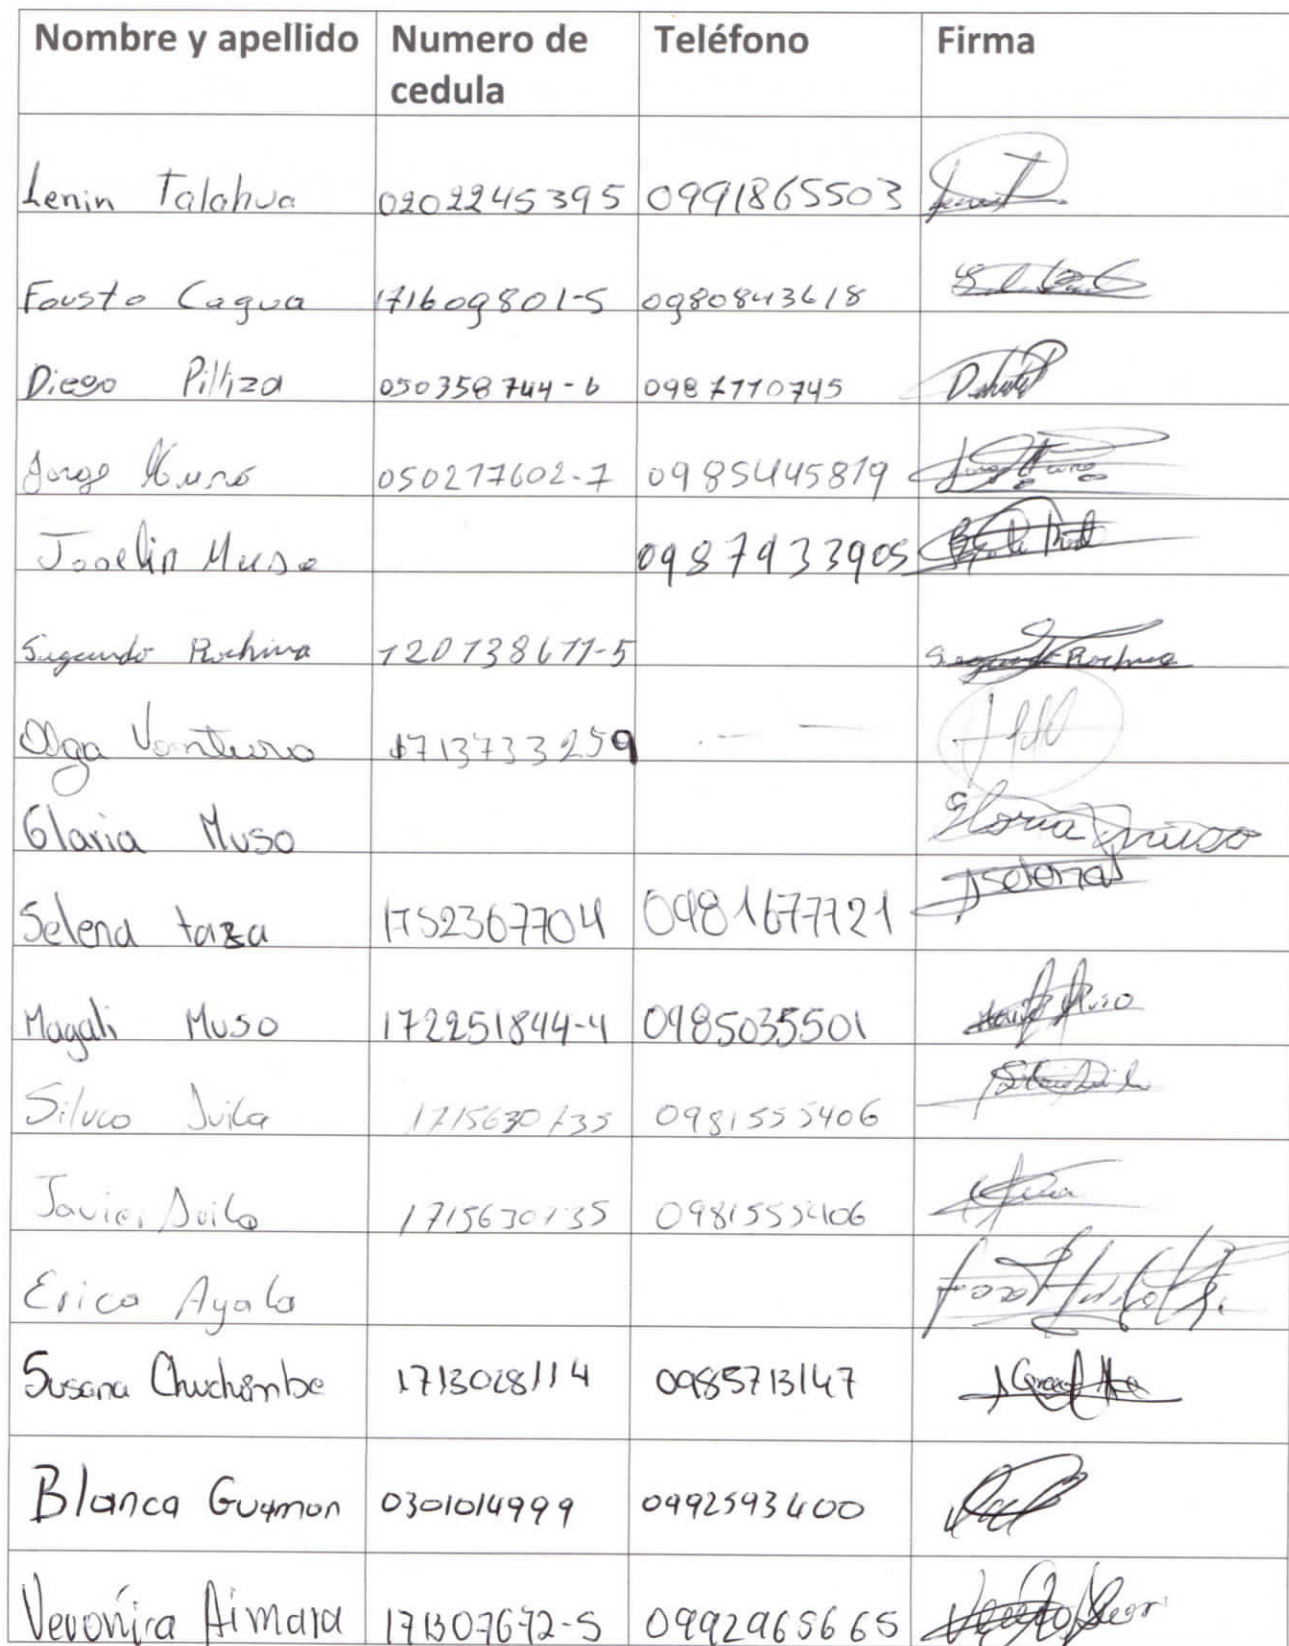 Nombre y apellido Numero de cedula Teléfono Firma
Lenin Talahua 0202245395 0991865503
Fausto Cagua 171609801-5 0980843618
Diego Pilliza 050358744-6 0987770745
Jorge Muso 050217602-7 0985445819
Joselin Muso 0987933905
Segundo Rochina 120138611-5 Segundo Rochina
Olga Venturo 1713733259
Glaria Muso Gloria Muso
Selena taza 1752367704 0981677721 Selena
Magali Muso 172251844-4 0985035501 Muso
Avila 0981555406
Javier Avila 0981555406
Erica Ayala
Susana Chuchimbe 1713028114 0985713147
Blanca Guaman 0301014999 0992593400
Veronica Aimara 171307672-5 0992965665